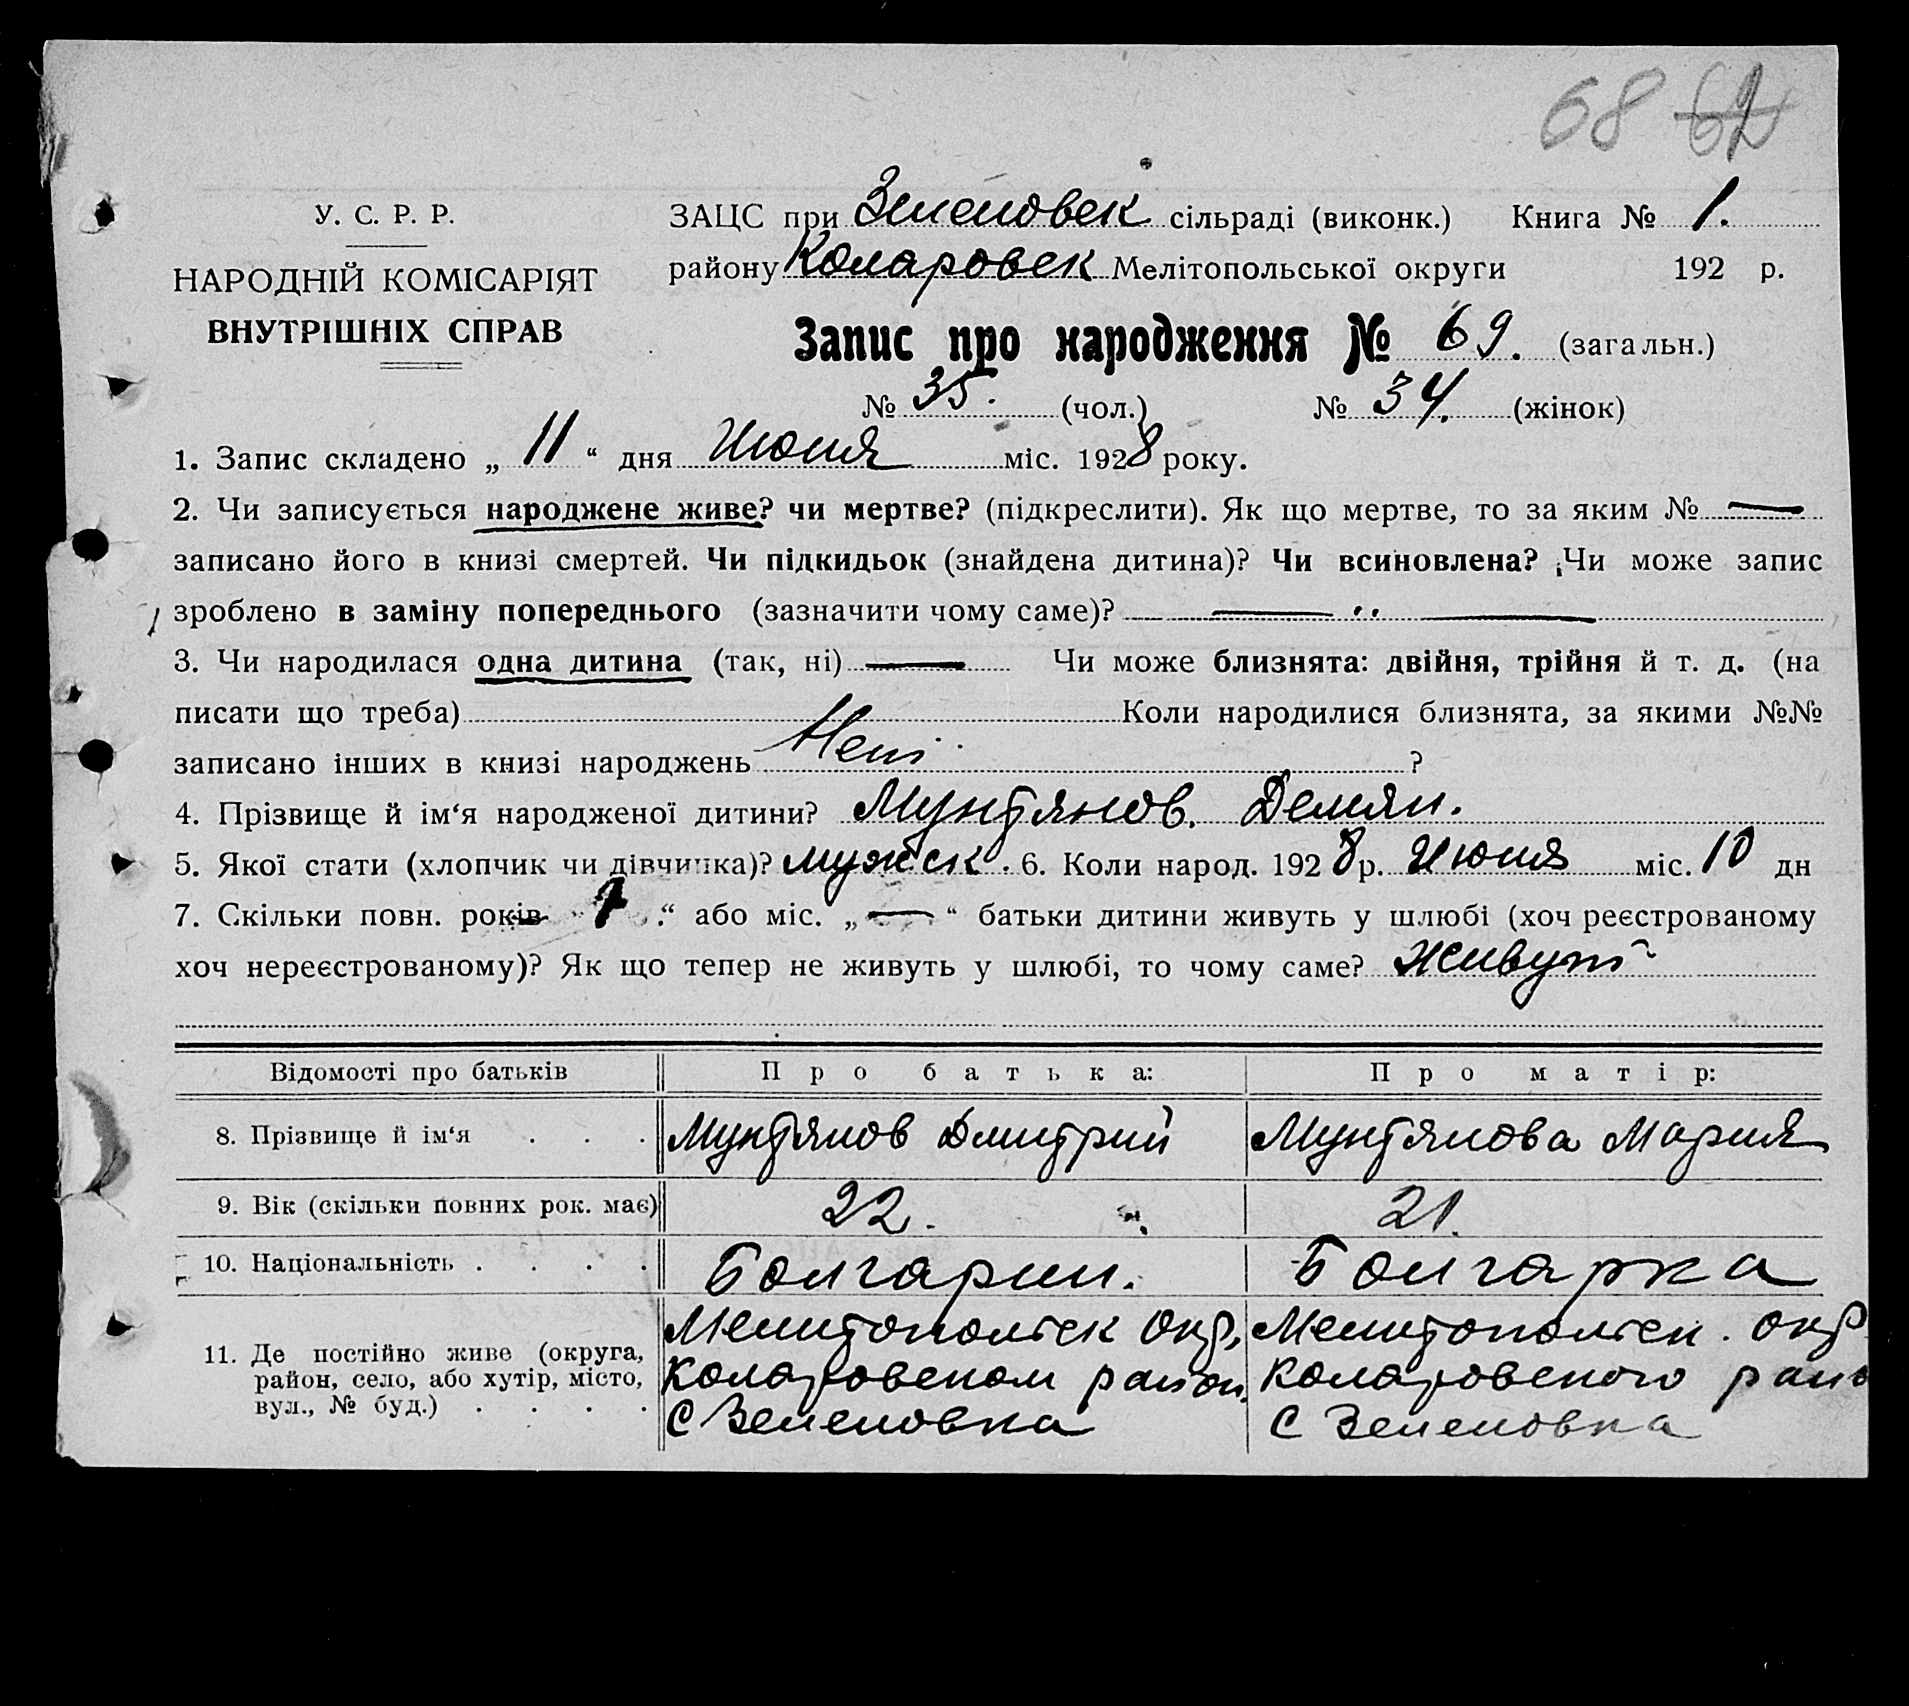 68 62
У. С. Р. Р.
НАРОДНІЙ КОМІСАРІЯТ
ВНУТРІШНІХ СПРАВ
ЗАЦС при Зеленовск сільраді (виконк.) Книга № 1.
району Коларовск Мелітопольської округи 192 р.
Запис про народження № 69. (загальн.)
№ 35. (чол.) № 34. (жінок)
1. Запис складено „ 11 “ дня Июня міс. 1928 року.
2. Чи записується народжене живе? чи мертве? (підкреслити). Як що мертве, то за яким № —
записано його в книзі смертей. Чи підкидьок (знайдена дитина)? Чи всиновлена? Чи може запис
зроблено в заміну попереднього (зазначити чому саме)? — „ —
3. Чи народилася одна дитина (так, ні) — Чи може близнята: двійня, трійня й т. д. (на
писати що треба) Коли народилися близнята, за якими №№
записано інших в книзі народжень ?
4. Прізвище й ім‘я народженої дитини? Мунтянов. Демян.
5. Якої стати (хлопчик чи дівчинка)? мужск. 6. Коли народ. 1928 р. Июня міс. 10 дн
7. Скільки повн. років „ “ або міс. „ — “ батьки дитини живуть у шлюбі (хоч реєстрованому
хоч нереєстрованому)? Як що тепер не живуть у шлюбі, то чому саме? Живут
Відомості про батьків Про батька: Про матір:
8. Прізвище й ім‘я . . . Мунтянов Дмитрий Мунтянова Мария
9. Вік (скільки повних рок. має) 22. 21.
10. Національність . . . . Болгарин. Болгарка
11. Де постійно живе (округа, район, село, або хутір, місто, вул., № буд.) . . . .
Мелитопольск Окр, Мелитопольск. окр
Коларовском район. Коларовского
С Зеленовка С Зеленовка